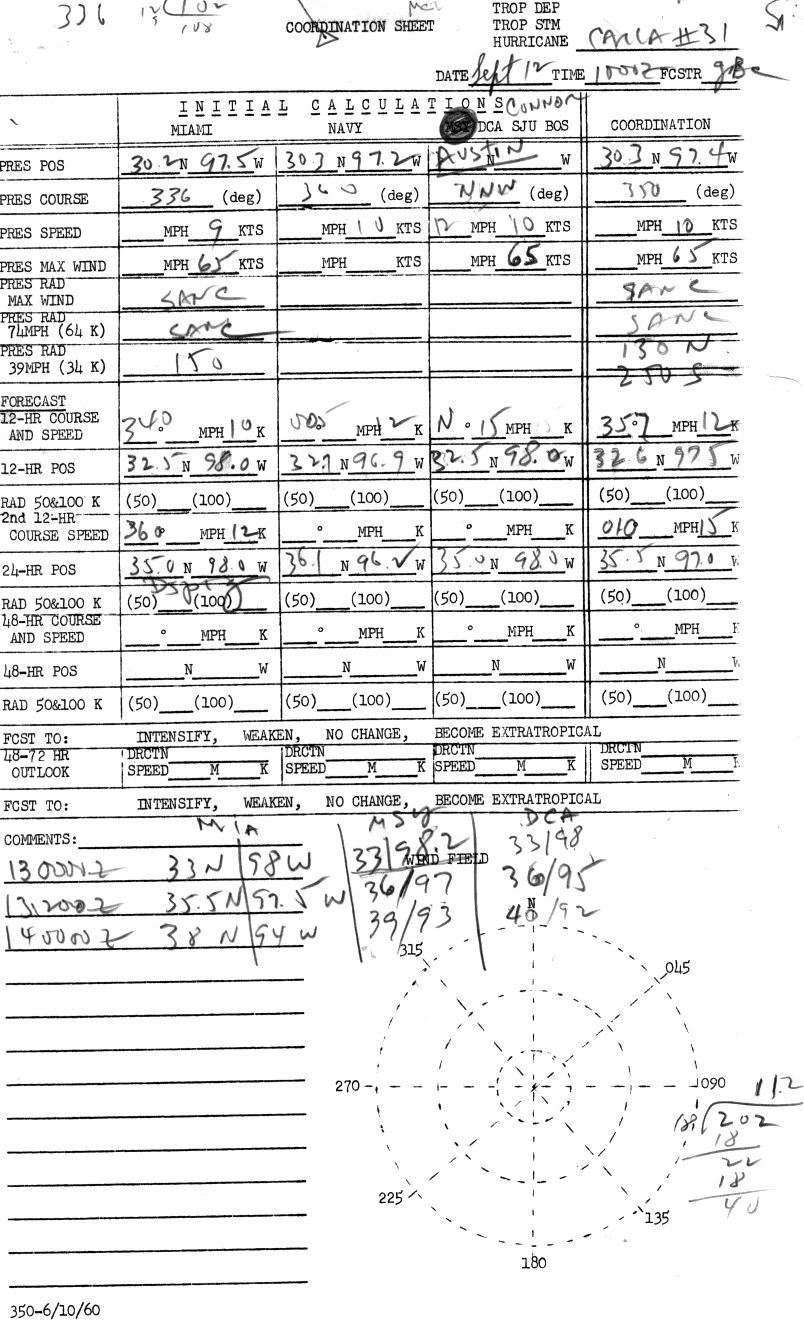 336 12/102
108
TROP DEP
COORDINATION SHEET TROP STM
HURRICANE CARLA #31
DATE Sept 12 TIME 1000Z FCSTR
INITIAL CALCULATIONS CONNOR
MIAMI NAVY MSY DCA SJU BOS COORDINATION
PRES POS 30.2 N 97.5 W 30.3 N 97.2 W AUSTIN N W 30.3 N 97.4 W
PRES COURSE 336 (deg) 360 (deg) NNW (deg) 350 (deg)
PRES SPEED MPH 9 KTS MPH 10 KTS 12 MPH 10 KTS MPH 10 KTS
PRES MAX WIND MPH 65 KTS MPH KTS MPH 65 KTS MPH 65 KTS
PRES RAD
MAX WIND SAME SAME
PRES RAD
74MPH (64 K) SAME SAME
PRES RAD 130 N
39MPH (34 K) 150 250 S
FORECAST
12-HR COURSE
AND SPEED 340° MPH 10 K 005 MPH 12 K N ° 15 MPH K 357 MPH 12 K
12-HR POS 32.5 N 98.0 W 32.7 N 96.9 W 32.5 N 98.0 W 32.6 N 97.5 W
RAD 50&100 K (50) (100) (50) (100) (50) (100) (50) (100)
2nd 12-HR
COURSE SPEED 360 MPH 12 K ° MPH K ° MPH K 010 MPH 15 K
24-HR POS 35.0 N 98.0 W 36.1 N 96.2 W 35.0 N 98.0 W 35.5 N 97.0 W
RAD 50&100 K (50) (100) (50) (100) (50) (100) (50) (100)
48-HR COURSE
AND SPEED ° MPH K ° MPH K ° MPH K ° MPH K
48-HR POS N W N W N W N W
RAD 50&100 K (50) (100) (50) (100) (50) (100) (50) (100)
FCST TO: INTENSIFY, WEAKEN, NO CHANGE, BECOME EXTRATROPICAL
48-72 HR DRCTN DRCTN DRCTN DRCTN
OUTLOOK SPEED M K SPEED M K SPEED M K SPEED M K
FCST TO: INTENSIFY, WEAKEN, NO CHANGE, BECOME EXTRATROPICAL
MIA MSY DCA
COMMENTS: 33/98.2 33/98
130000Z 33 N 98 W WIND FIELD
131200Z 35.5 N 97.5 W 36/97 36/95
140000Z 38 N 94 W 39/93 40/92
N
315 045
270 090 11.2
18/202
18
22
18
40
225 135
180
350-6/10/60